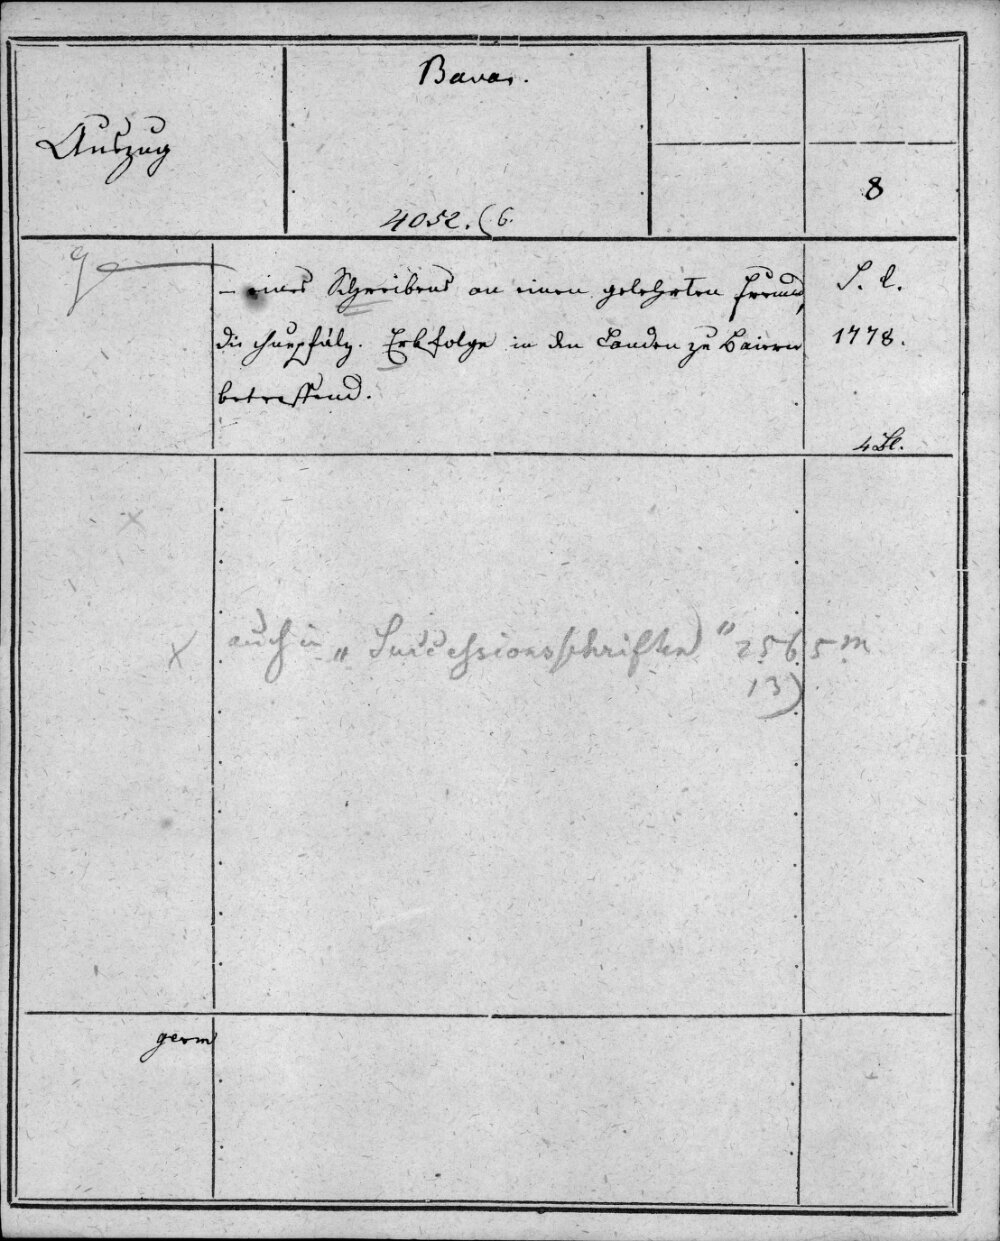 Bavar.
Auszug
8
4052. (6.
ge
– eines Schreibens an einen gelehrten Freund,
S. l.
die churpfälz. Erbfolge in den Landen zu Baiern
1778.
betreffend.
4 Bl.
x
x auch in „Successionsschriften" 2565 m
13)
germ